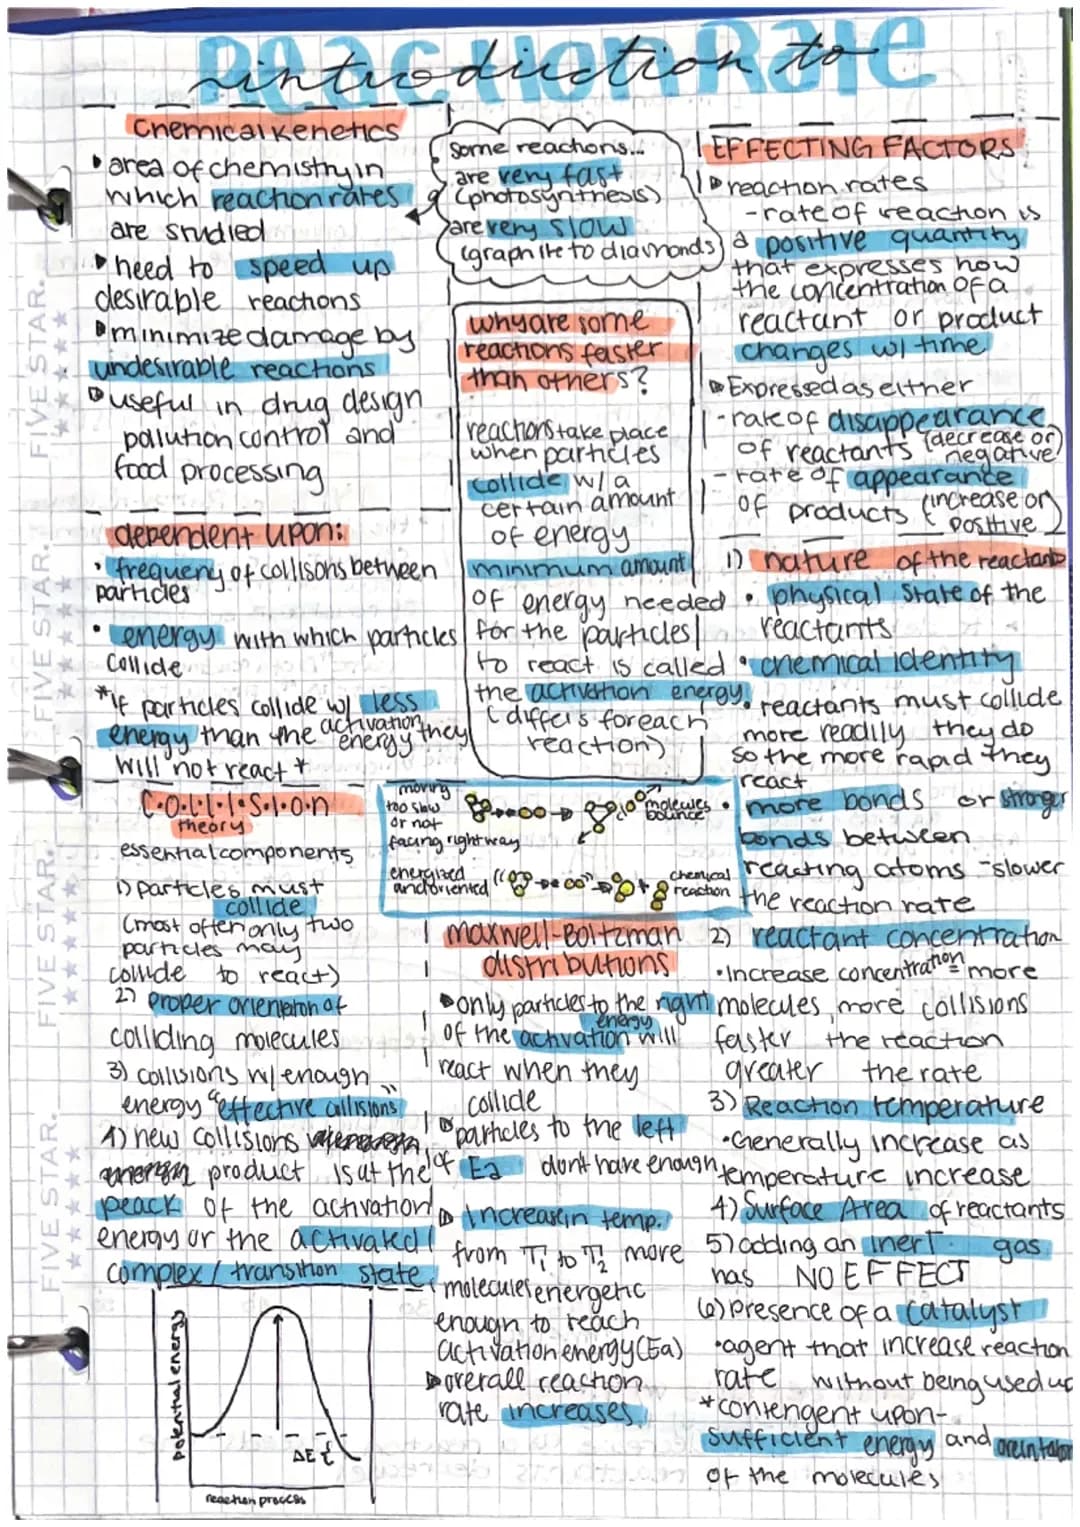 introduction to
Reaction Rate
Chemical Kenetics
area of chemistry in
which reaction rates
are studied
need to speed up
desirable reactions
minimize damage by
undesirable reactions
useful in drug design
pollution control and
food processing
dependent upon:
• frequeny of collisons between
particles
• energy with which particles
collide
*If particles collide w/ less
energy than the activation
energy they
will not react *
C•O•L•L•I•S•I•O•N
theory
essential components
1) particles must
collide
(most often only two
particles may
collide to react)
2) proper orientation of
colliding molecules
3) collisions w/ enough
energy "effective collisions"
4) new collisions
product is at the
peack of the activation
energy or the activated
complex / transition state
potential energy
ΔE {
reaction process
some reactions...
are very fast
(photosynthesis)
are very slow
(graphite to diamonds)
why are some
reactions faster
than others?
reactions take place
when particles
collide w/ a
certain amount
of energy
minimum amount
of energy needed
for the particles
to react is called
the activation energy
(differs for each
reaction)
moving
too slow
or not
facing right way
molecules
bounce
energized
and oriented
chemical
reaction
maxwell-Boltzman
distributions
only particles to the right
of the activation energy will
react when they
collide
particles to the left
of Ea dont have enough
increase in temp.
from T1 to T2 more
molecules energetic
enough to reach
activation energy (Ea)
overall reaction
rate increases
EFFECTING FACTORS
reaction rates
- rate of reaction is
a positive quantity
that expresses how
the concentration of a
reactant or product
changes w/ time
Expressed as either
- rate of disappearance
of reactants (decrease or
negative)
- rate of appearance
of products (increase or
positive)
1) nature of the reactants
• physical state of the
reactants
• chemical identity
• reactants must collide
more readily they do
so the more rapid they
react
• more bonds or stronger
bonds between
reacting atoms - slower
the reaction rate
2) reactant concentration
• Increase concentration = more
molecules, more collisions
faster the reaction
greater the rate
3) Reaction temperature
• Generally increase as
temperature increase
4) Surface Area of reactants
5) adding an inert gas
has NO EFFECT
6) presence of a catalyst
• agent that increase reaction
rate without being used up
* contengent upon-
sufficient energy and
of the molecules
FIVE STAR.
FIVE STAR.
FIVE STAR.
FIVE STAR.